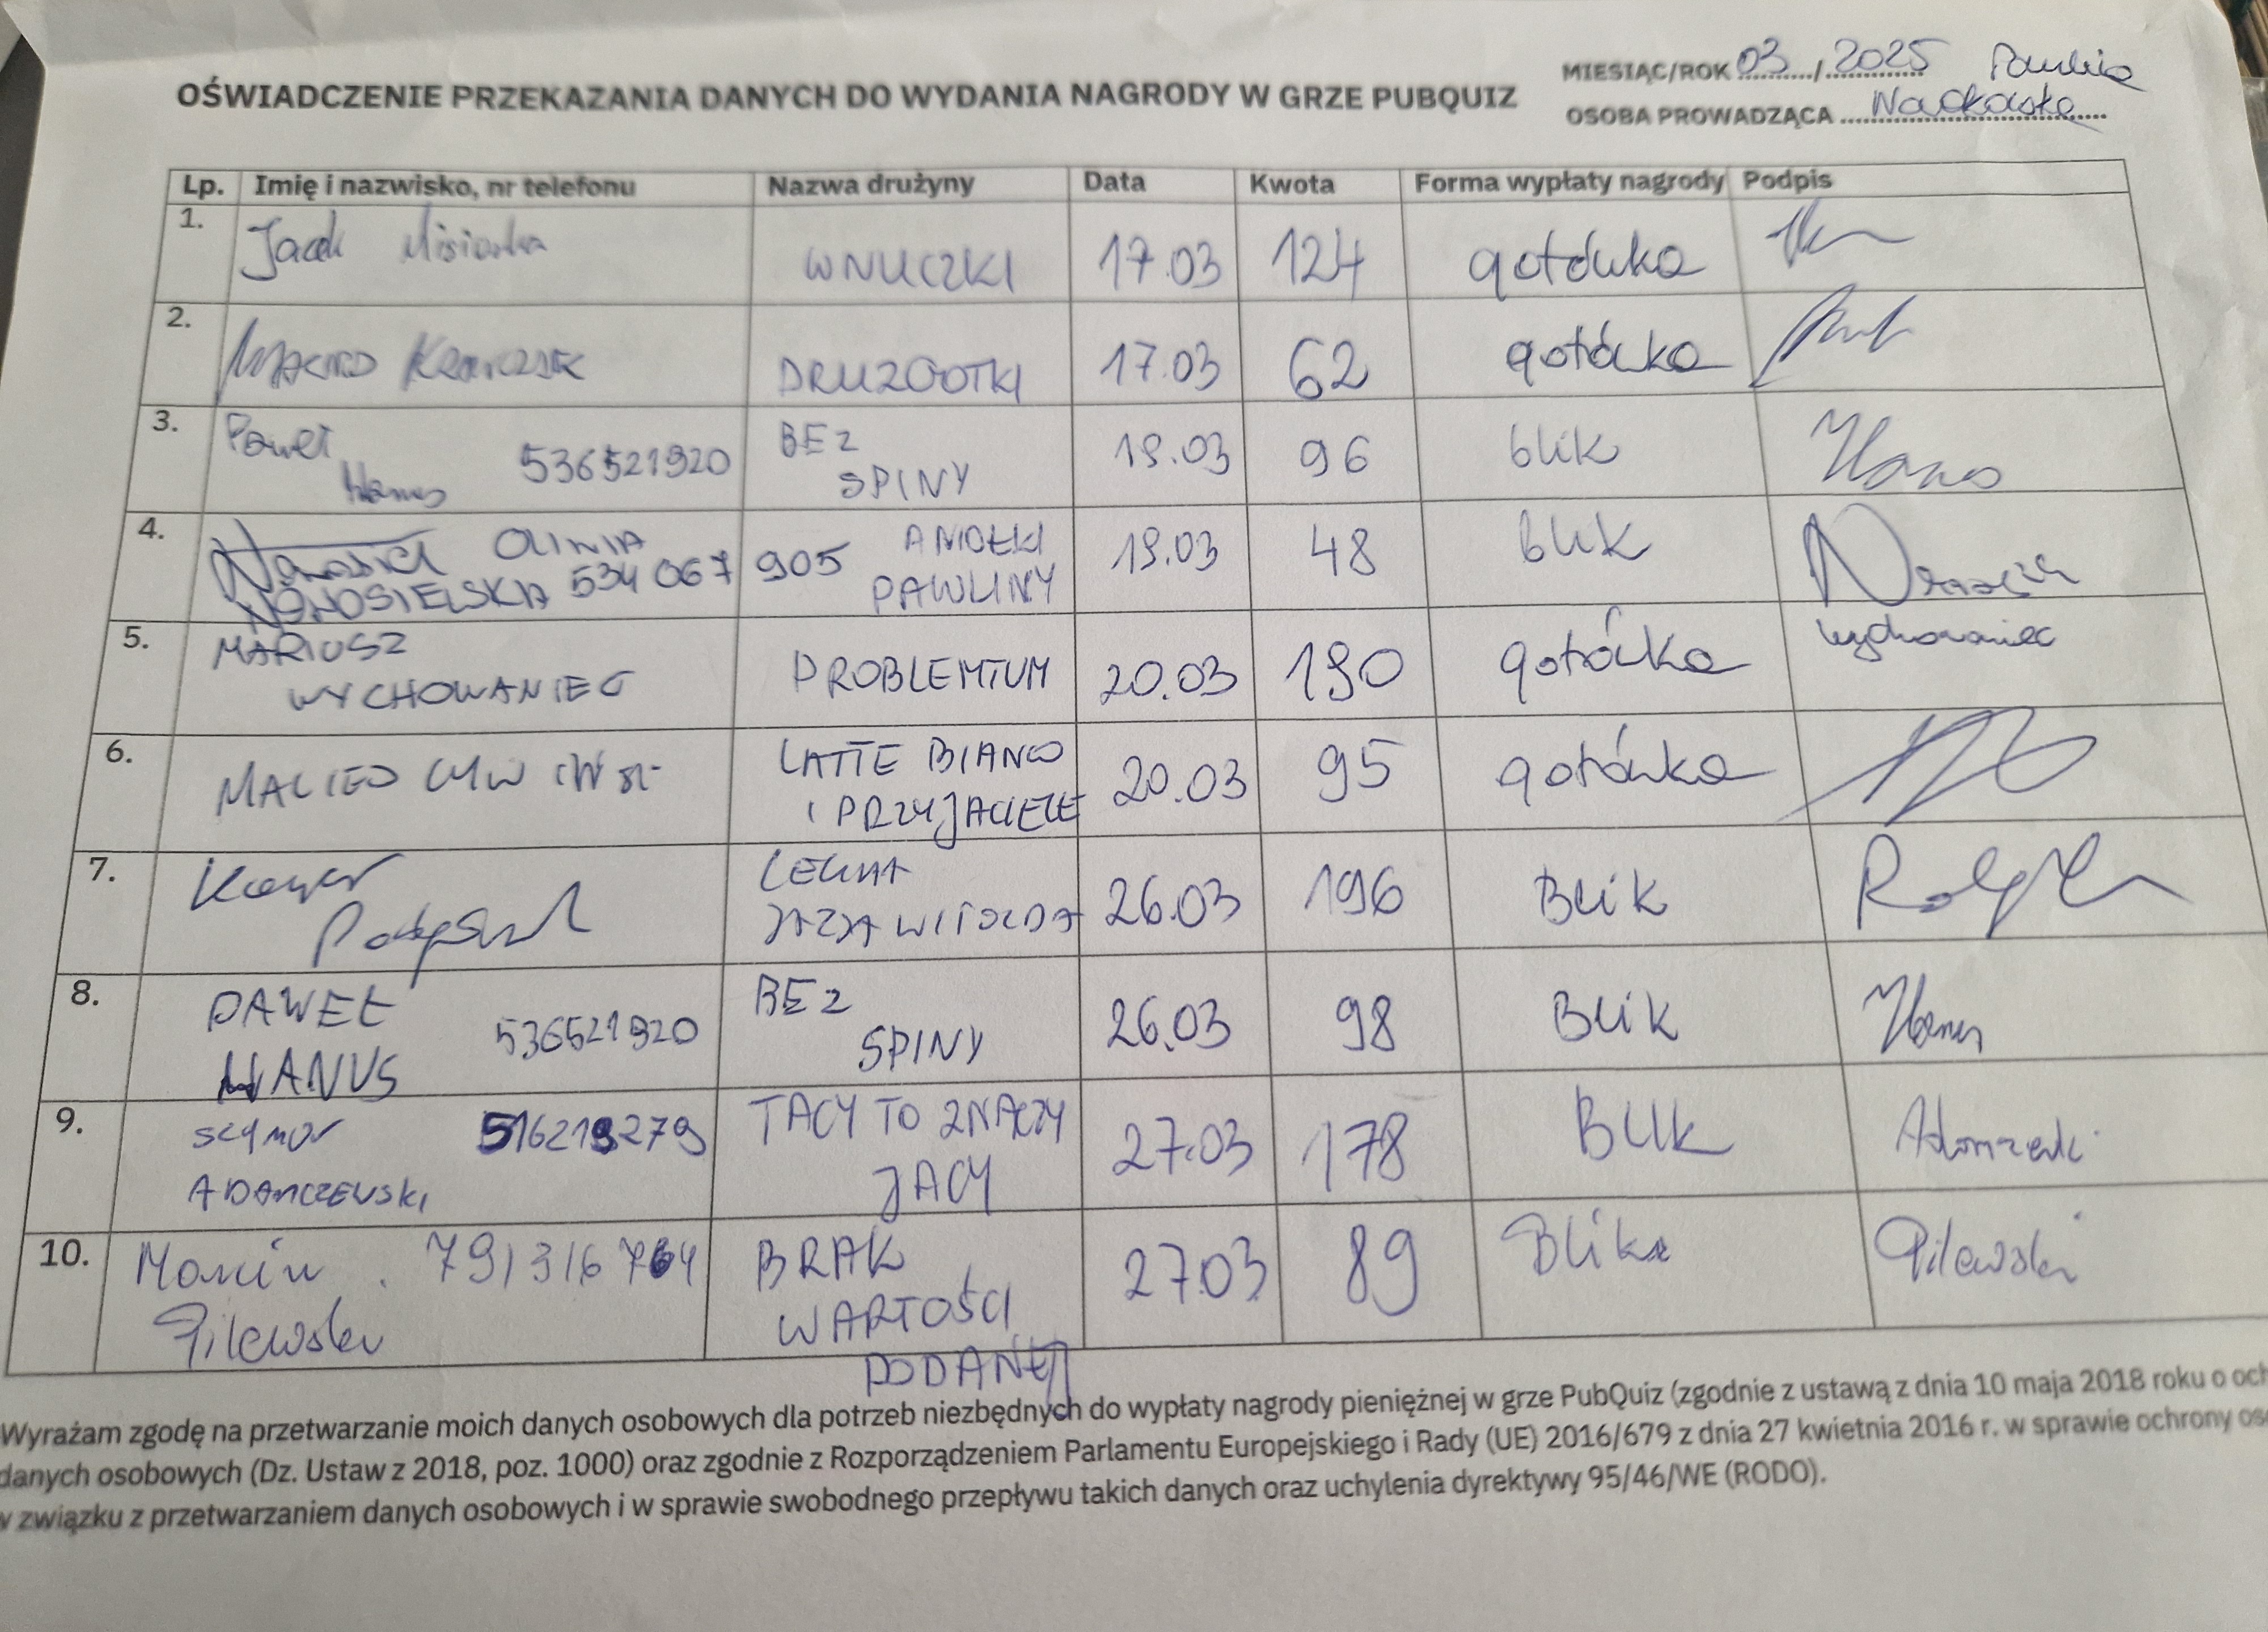 MIESIĄC/ROK 03 / 2025 Paulina
OŚWIADCZENIE PRZEKAZANIA DANYCH DO WYDANIA NAGRODY W GRZE PUBQUIZ
OSOBA PROWADZĄCA
Lp. Imię i nazwisko, nr telefonu Nazwa drużyny Data Kwota Forma wypłaty nagrody Podpis
1. Jacek WNUCZKI 17.03 124 gotówka
2. DRUZGOTKI 17.03 62 gotówka
3. Paweł Hanus 536521920 BEZ SPINY 19.03 96 blik Hanus
4. OLIWIA NOWOSIELSKA 534 067 905 ANIOŁKI PAWLINY 19.03 48 blik
5. MARIUSZ WYCHOWANIEC PROBLEMTUM 20.03 190 gotówka Wychowaniec
6. MACIEJ LATTE BIANCO I PRZYJACIELE 20.03 95 gotówka
7. JAZDA WITOLDA 26.03 196 BLIK
8. PAWEŁ HANUS 536521920 BEZ SPINY 26.03 98 BLIK Hanus
9. SZYMON ADAMCZEWSKI 516219279 TACY TO ZNACZY JACY 27.03 178 BLIK
10. Marcin Pilewski 791316764 BRAK WARTOŚCI DODANEJ 27.03 89 Blik Pilewski
Wyrażam zgodę na przetwarzanie moich danych osobowych dla potrzeb niezbędnych do wypłaty nagrody pieniężnej w grze PubQuiz (zgodnie z ustawą z dnia 10 maja 2018 roku o och
danych osobowych (Dz. Ustaw z 2018, poz. 1000) oraz zgodnie z Rozporządzeniem Parlamentu Europejskiego i Rady (UE) 2016/679 z dnia 27 kwietnia 2016 r. w sprawie ochrony os
w związku z przetwarzaniem danych osobowych i w sprawie swobodnego przepływu takich danych oraz uchylenia dyrektywy 95/46/WE (RODO).